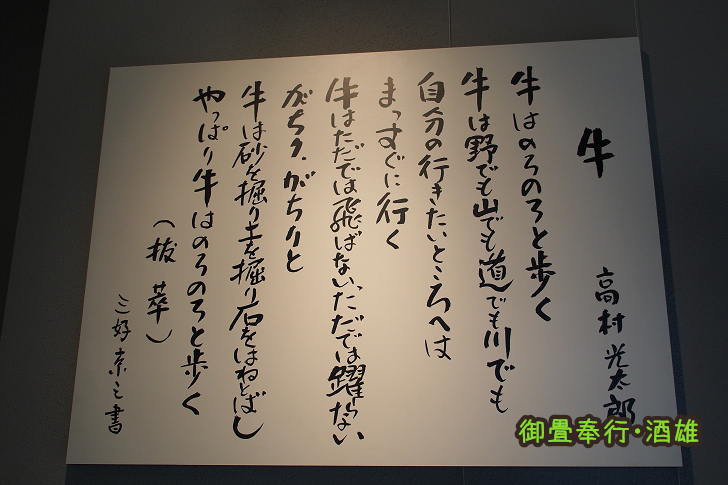 牛
高村光太郎
牛はのろのろと歩く
牛は野でも山でも道でも川でも
自分の行きたいところへは
まっすぐに行く
牛はただでは飛ばない、ただでは躍らない
がちり、がちりと
牛は砂を掘り土を掘り石をはねとばし
やっぱり牛はのろのろと歩く
（抜萃）
三好京三書
御畳奉行・酒雄